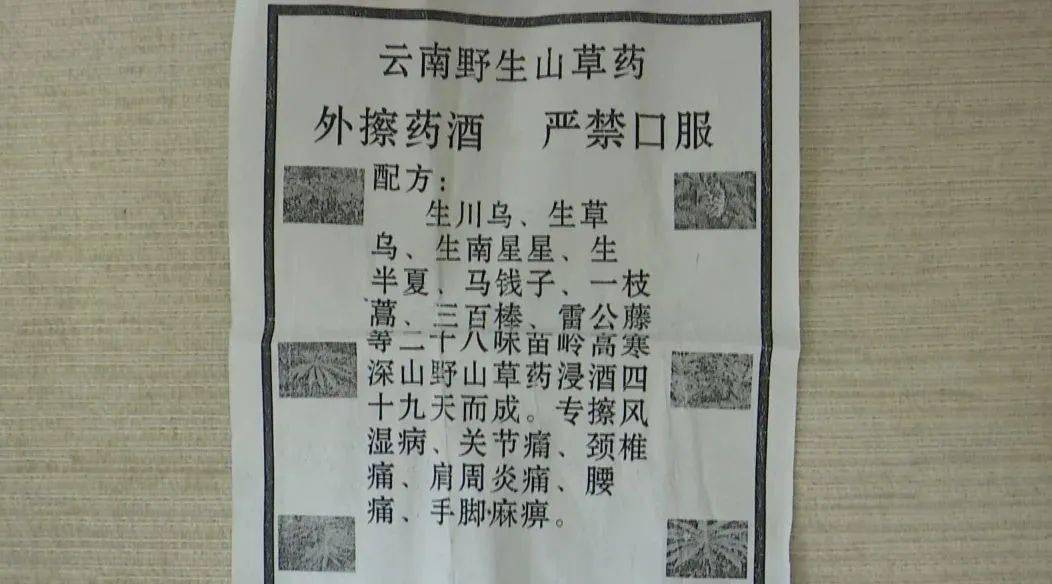 云南野生山草药
外擦药酒 严禁口服
配方：
生川乌、生草
乌、生南星星、生
半夏、马钱子、一枝
蒿、三百棒、雷公藤
等二十八味苗岭高寒
深山野山草药浸酒四
十九天而成。专擦风
湿病、关节痛、颈椎
痛、肩周炎痛、腰
痛、手脚麻痹。